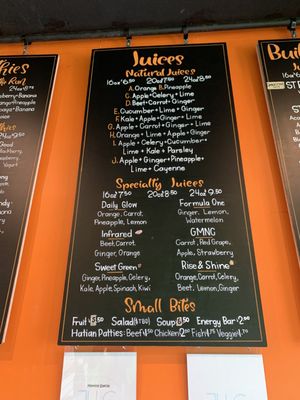 Juices
Natural Juices
16oz $6.50 20oz $7.50 24oz $8.50
A. Orange B. Pineapple
C. Apple+Celery+Lime
D. Beet+Carrot+Ginger
E. Cucumber+Lime+Ginger
F. Kale+Apple+Ginger+Lime
G. Apple+Carrot+Ginger+Lime
H. Orange+Lime+Apple+Ginger
I. Apple+Celery+Cucumber+
Lime+Kale+Parsley
J. Apple+Ginger+Pineapple+
Lime+Cayenne
Specialty Juices
16oz $7.50 20oz $8.50 24oz $9.50
Daily Glow
Orange, Carrot,
Pineapple, Lemon
Infrared
Beet, Carrot,
Ginger, Orange
Sweet Green
Ginger, Pineapple, Celery,
Kale, Apple, Spinach, Kiwi
Formula One
Ginger, Lemon,
Watermelon
GMNG
Carrot, Red Grape,
Apple, Strawberry
Rise & Shine
Orange, Carrot, Celery,
Beet, Lemon, Ginger
Small Bites
Fruit Salad Soup Energy Bar $2.00
Haitian Patties: Beef Chicken Fish Veggie